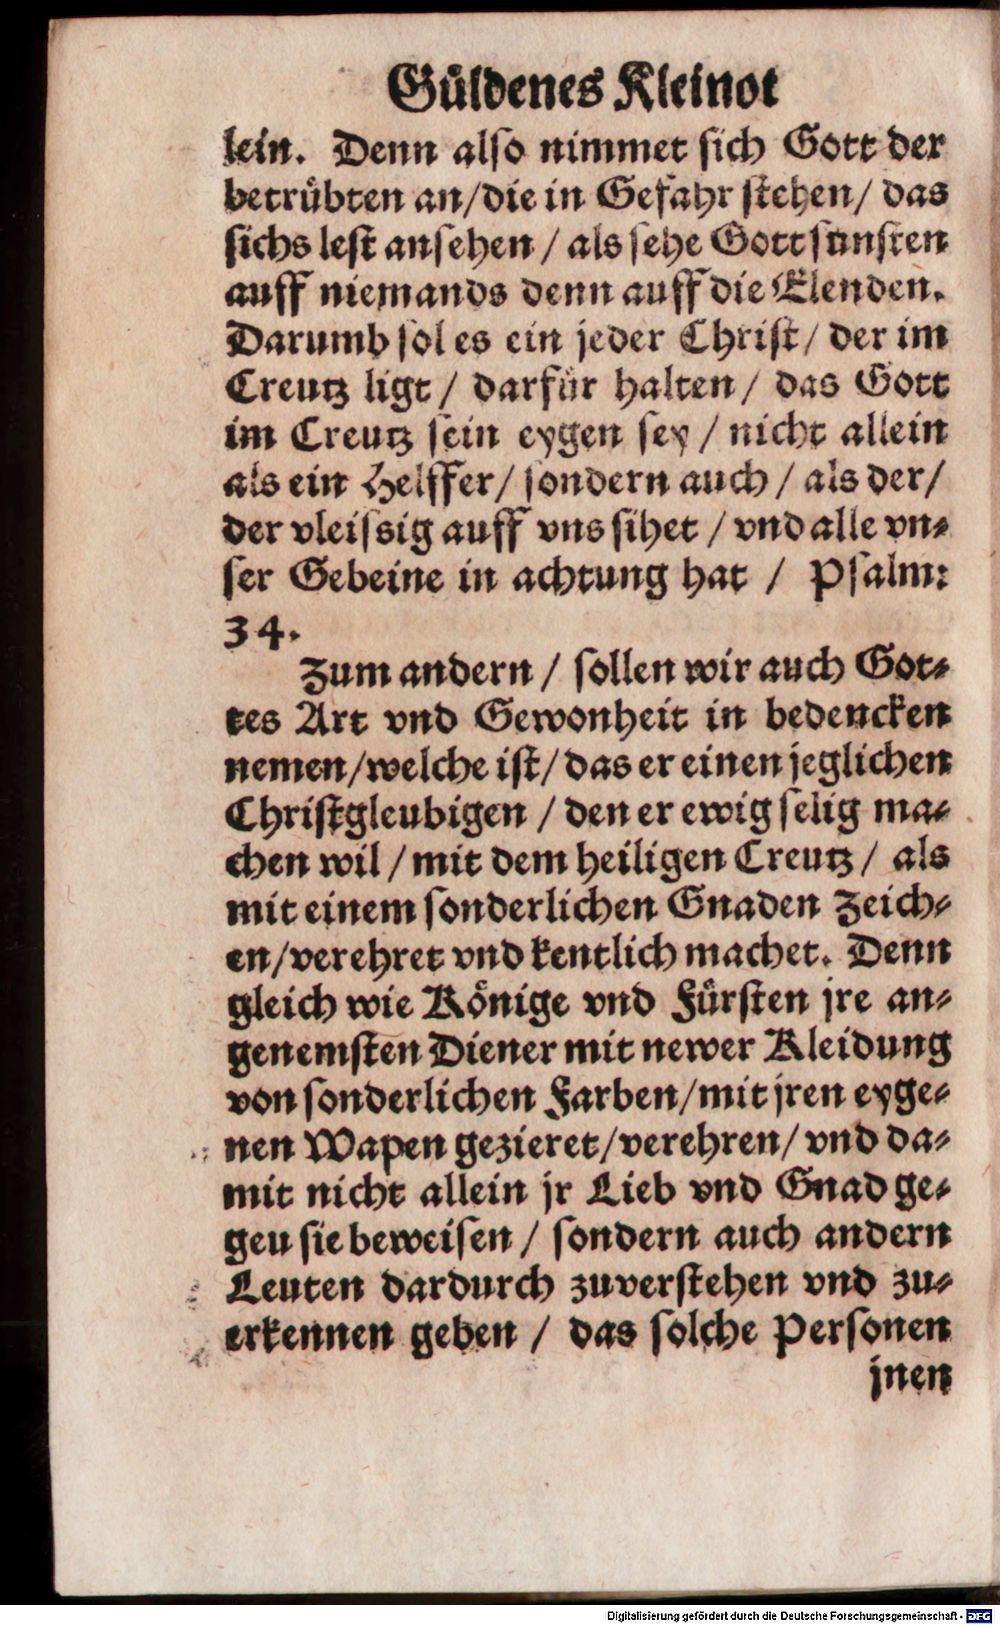 Güldenes Kleinot
lein. Denn also nimmet sich Gott der
betrübten an/die in Gefahr stehen/ das
sichs lest ansehen / als sehe Gott sunsten
auff niemands denn auff die Elenden.
Darumb sol es ein jeder Christ/ der im
Creutz ligt / darfür halten / das Gott
im Creutz sein eygen sey / nicht allein
als ein Helffer/ sondern auch / als der/
der vleissig auff vns sihet / vnd alle vn-
ser Gebeine in achtung hat / Psalm:
34.
Zum andern / sollen wir auch Got-
tes Art vnd Gewonheit in bedencken
nemen/welche ist/das er einen jeglichen
Christgleubigen / den er ewig selig ma-
chen wil / mit dem heiligen Creutz / als
mit einem sonderlichen Gnaden Zeich-
en/verehret vnd kentlich machet. Denn
gleich wie Könige vnd Fürsten jre an-
genemsten Diener mit newer Kleidung
von sonderlichen Farben/mit jren eyge-
nen Wapen gezieret/verehren/ vnd da-
mit nicht allein jr Lieb vnd Gnad ge-
geu sie beweisen / sondern auch andern
Leuten dardurch zuverstehen vnd zu-
erkennen geben / das solche Personen
jnen
Digitalisierung gefördert durch die Deutsche Forschungsgemeinschaft - DFG